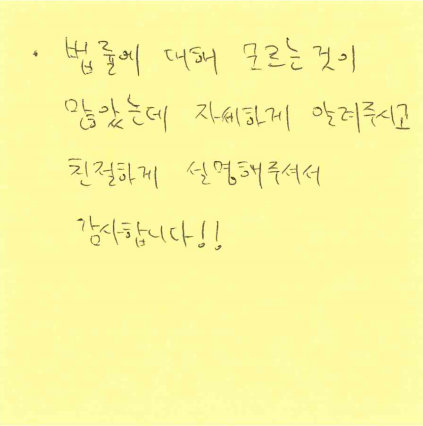 · 법률에 대해 모르는것이
많았는데 자세하게 알려주시고
친절하게 설명해주셔서
감사합니다!!